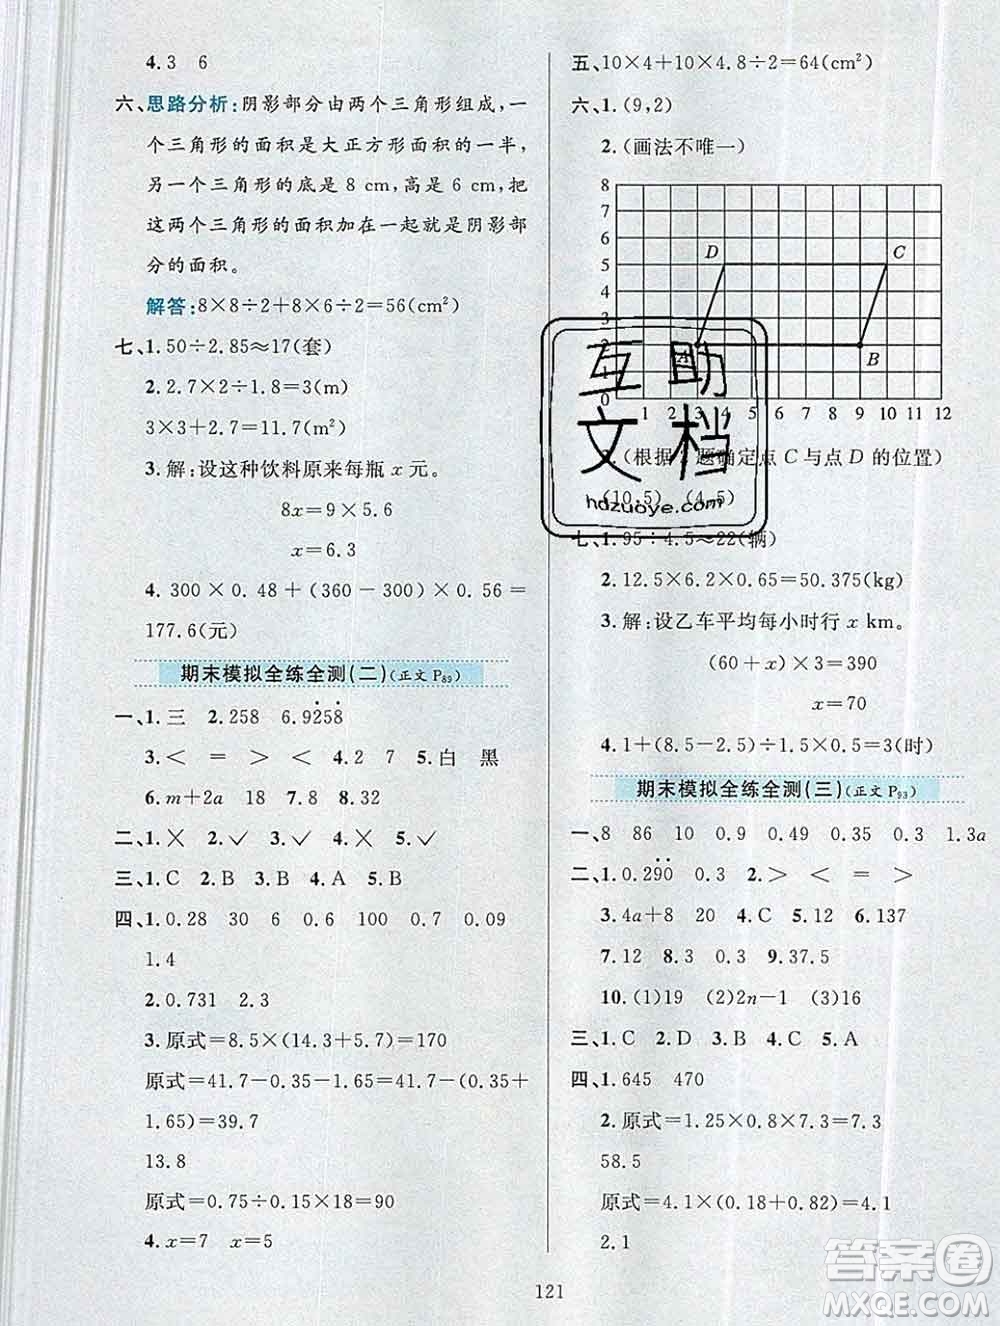 4.3　6
六、思路分析:阴影部分由两个三角形组成,一
个三角形的面积是大正方形面积的一半,
另一个三角形的底是 8 cm,高是 6 cm,把
这两个三角形的面积加在一起就是阴影部
分的面积。
解答:8×8÷2+8×6÷2=56(cm²)
七、1.50÷2.85≈17(套)
2.2.7×2÷1.8=3(m)
3×3+2.7=11.7(m²)
3.解:设这种饮料原来每瓶 x 元。
8x=9×5.6
x=6.3
4.300×0.48+(360-300)×0.56=
177.6(元)
期末模拟全练全测(二)(正文 P₈₉)
一、1.三　2.258　6.92̇58̇
3.<　=　>　<　4.2　7　5.白　黑
6.m+2a　18　7.8　8.32
二、1.×　2.✓　3.✓　4.×　5.✓
三、1.C　2.B　3.B　4.A　5.B
四、1.0.28　30　6　0.6　100　0.7　0.09
1.4
2.0.731　2.3
3.原式=8.5×(14.3+5.7)=170
原式=41.7-0.35-1.65=41.7-(0.35+
1.65)=39.7
13.8
原式=0.75÷0.15×18=90
4.x=7　x=5
五、10×4+10×4.8÷2=64(cm²)
六、1.(9,2)
2.(画法不唯一)
8
7
6
5
4
3
2
1
0
D　C
A　B
1 2 3 4 5 6 7 8 9 10 11 12
(根据　题确定点 C 与点 D 的位置)
(10,5)　(4,5)
七、1.95÷4.5≈22(辆)
2.12.5×6.2×0.65=50.375(kg)
3.解:设乙车平均每小时行 x km。
(60+x)×3=390
x=70
4.1+(8.5-2.5)÷1.5×0.5=3(时)
期末模拟全练全测(三)(正文 P₉₃)
一、8　86　10　0.9　0.49　0.35　0.3　1.3a
二、1.0.29̇0̇　0.3　2.>　<　=　>
3.4a+8　20　4.C　5.12　6.137
7.12　8.3　0.3　9.37.5
10.(1)19　(2)2n-1　(3)16
三、1.C　2.D　3.B　4.C　5.A
四、1.645　470
2.原式=1.25×0.8×7.3=7.3
58.5
原式=4.1×(0.18+0.82)=4.1
2.1
121
互助
文档
hdzuoye.com
答案圈
MXQE.COM